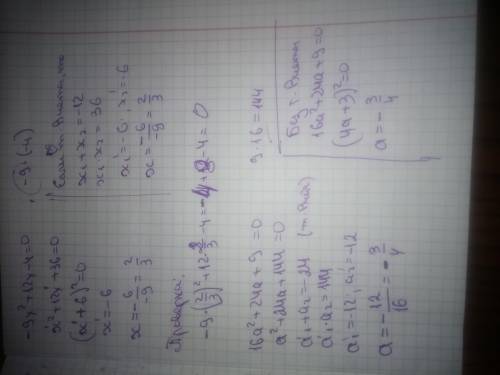 -9x²+12x-4=0, -9·(-4)
x'²+12x'+36=0
(x'+6)²=0
x'=-6
x=-6/-9=2/3
Если т. Виета, то
x₁'+x₂'=-12
x₁'·x₂'=36
x₁'=-6, x₂'=-6
x=-6/-9=2/3
Проверка:
-9·(2/3)²+12·2/3-4=-4+8-4=0
16a²+24a+9=0 9·16=144
a'²+24a+144=0
a'₁+a'₂=-24 (т. Виет)
a'₁·a'₂=144
a'₁=-12, a'₂=-12
a=-12/16=-3/4
Без т. Виета
16a²+24a+9=0
(4a+3)²=0
a=-3/4